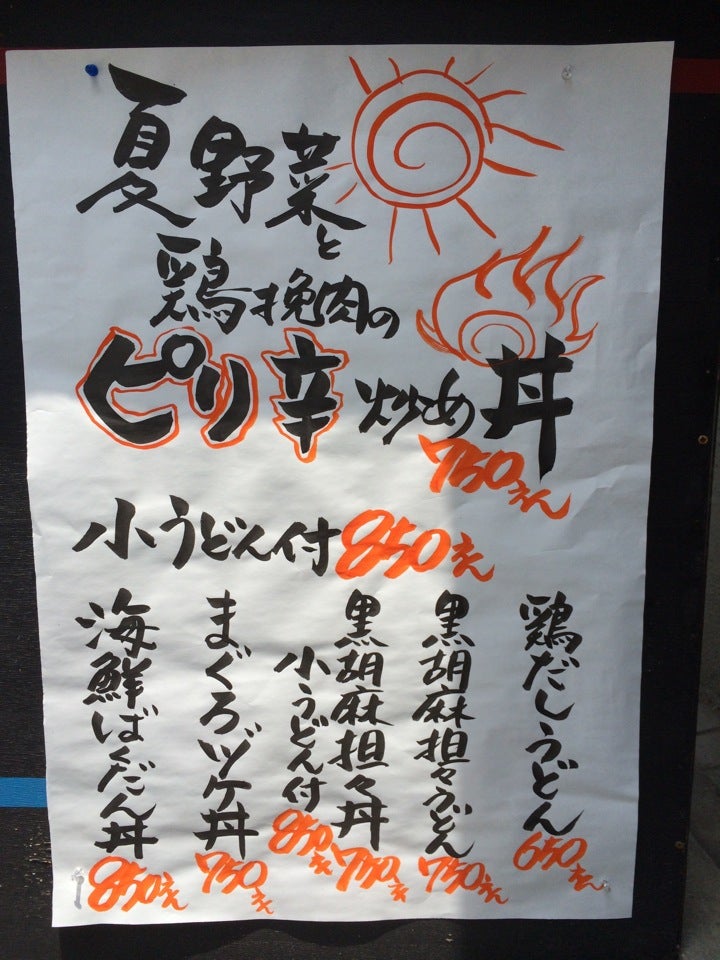 夏野菜と
鶏挽肉の
ピリ辛炒め丼
750えん
小うどん付850えん
鶏だしうどん
650えん
黒胡麻担々うどん
750えん
黒胡麻担々丼
750え
小うどん付
850え
まぐろヅケ丼
750えん
海鮮ばくだん丼
850えん